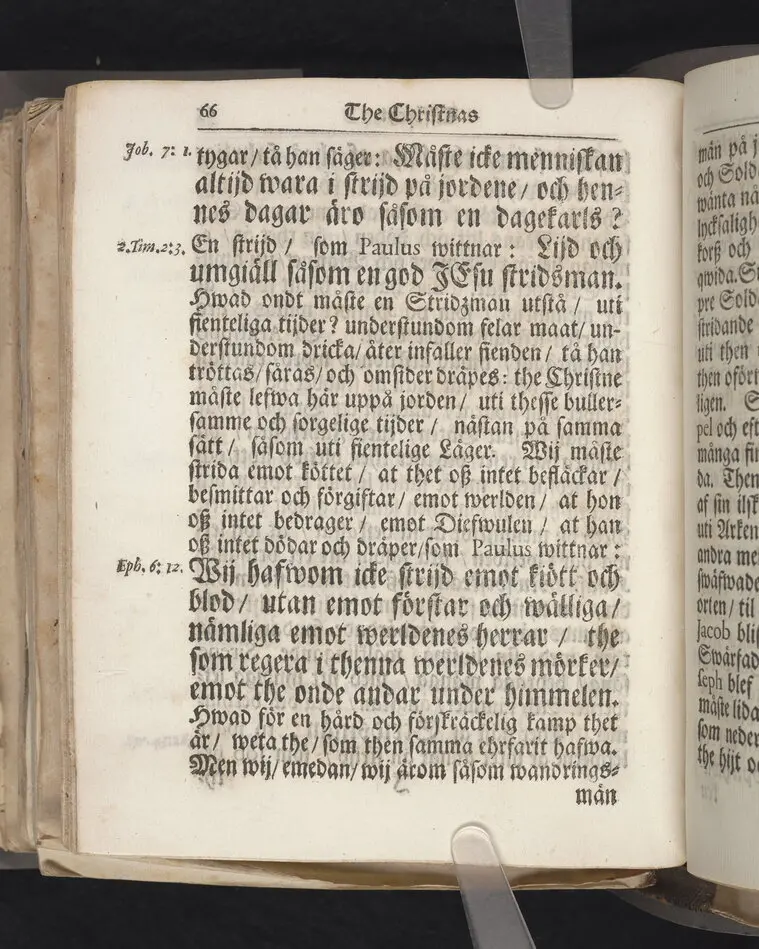 66 The Christnas
Job. 7: 1. tygar/ tå han säger: Måste icke menniskan
altijd wara i strijd på jordene/ och hen-
nes dagar äro såsom en dagekarls?
2. Tim. 2:3. En strijd/ som Paulus wittnar: Lijd och
umgiäll såsom en god JEsu stridsman.
Hwad ondt måste en Stridzman utstå/ uti
fienteliga tijder? understundom felar maat/ un-
derstundom dricka/ åter infaller fienden/ tå han
tröttas/ såras/ och omsider dräpes: the Christne
måste lefwa här uppå jorden/ uti thesse buller-
samme och sorgelige tijder/ nästan på samma
sätt/ såsom uti fientelige Läger. Wij måste
strida emot köttet/ at thet oß intet befläckar/
besmittar och förgiftar/ emot werlden/ at hon
oß intet bedrager/ emot Diefwulen/ at han
oß intet dödar och dräper/ som Paulus wittnar:
Eph. 6: 12. Wij hafwom icke strijd emot kiött och
blod/ utan emot förstar och wälliga/
nämliga emot werldenes herrar/ the
som regera i thenna werldenes mörker/
emot the onde andar under himmelen.
Hwad för en hård och förskräckelig kamp thet
är/ weta the/ som then samma ehrfarit hafwa.
Men wij/ emedan/ wij ärom såsom wandrings-
män
män på
och Sold
wänta
lycksaligh
korß och
qwida. S
pre Sold
stridande
uti then
then oför
ligen.
pel och eft
många fi
da. Then
af sin ilsk
uti Arken
andra me
swäfwade
orten/ til
Jacob bli
Swärfad
seph blef
måste lida
som neder
the hijt o